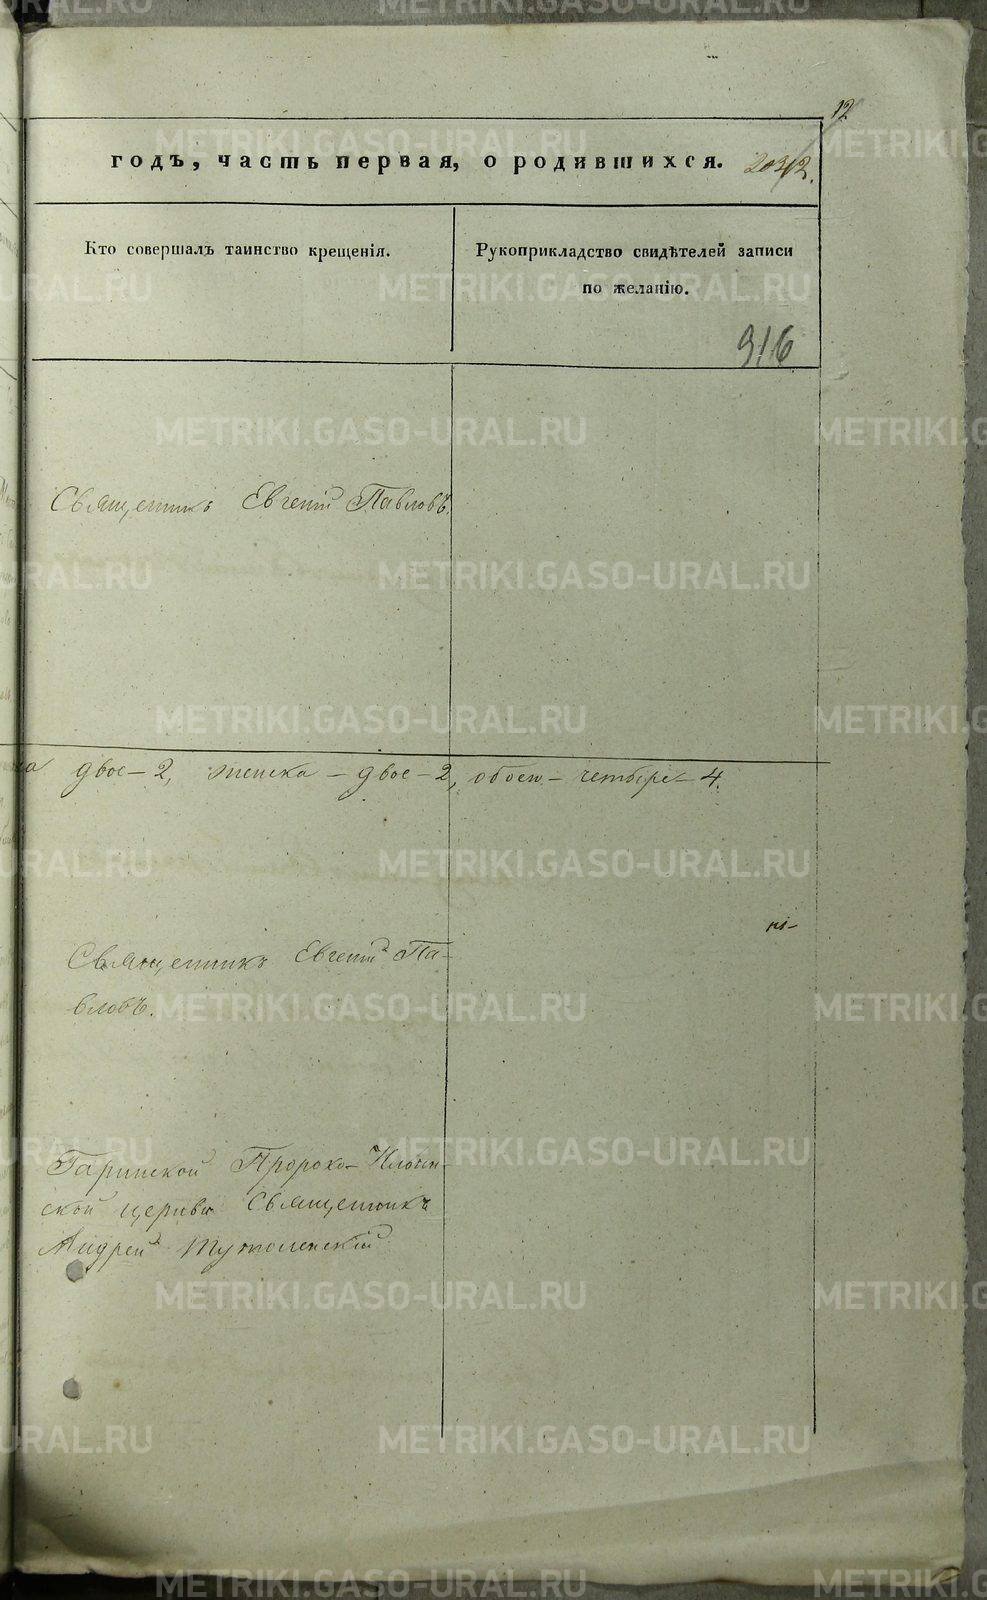 12
годъ, часть первая, о родившихся. 203/2.
Кто совершалъ таинство крещенія.
Рукоприкладство свидѣтелей записи
по желанію.
916
Священникъ Евгеній Павловъ.
двое - 2, женска - двое - 2, обоего - четыре - 4.
Священникъ Евгеній Па-
вловъ.
Гаринской Пророко-Ильин-
ской церкви Священникъ
Андрей
METRIKI.GASO-URAL.RU